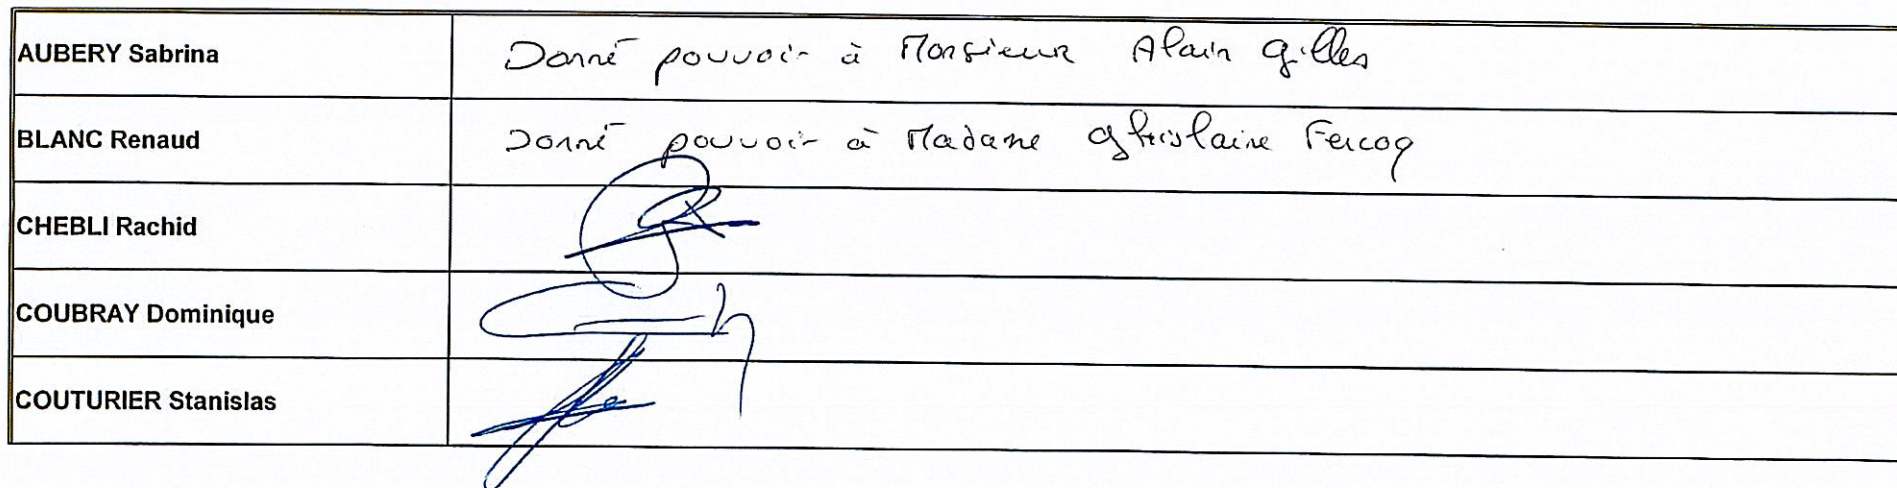 AUBERY Sabrina Donné pouvoir à Monsieur Alain Gilles
BLANC Renaud Donné pouvoir à Madame Ghislaine Fercoq
CHEBLI Rachid
COUBRAY Dominique
COUTURIER Stanislas